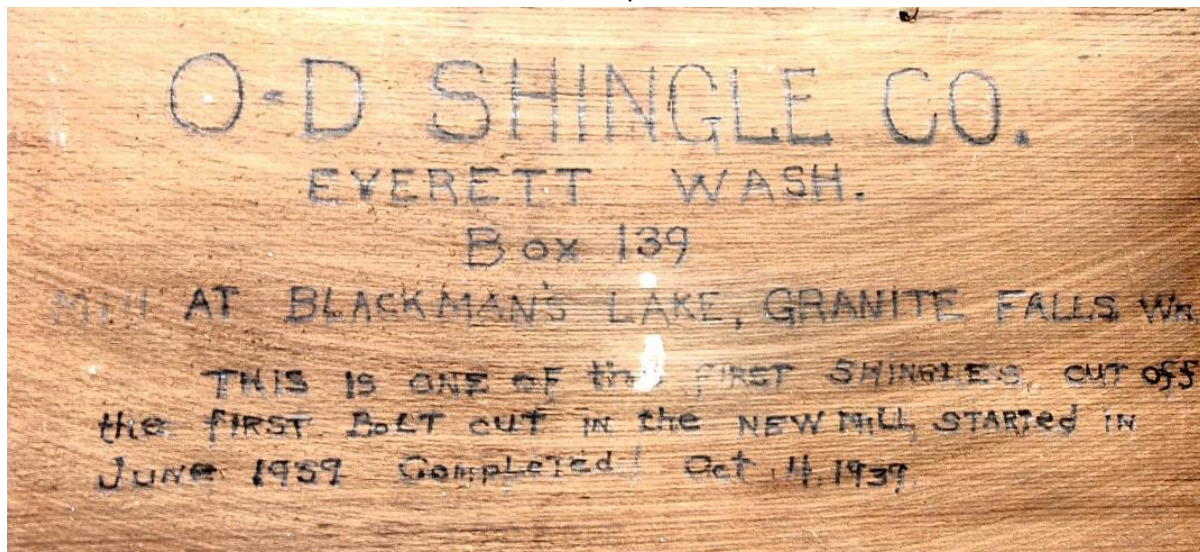 O-D SHINGLE CO.
EVERETT WASH.
Box 139
Mill AT BLACKMAN'S LAKE, GRANITE FALLS Wn
THIS IS ONE OF the FIRST SHINGLES, CUT Off
the fIRST BOLT CUT IN the NEW MILL, STARTed IN
JUNe 1939 CompLeTed Oct 4, 1939